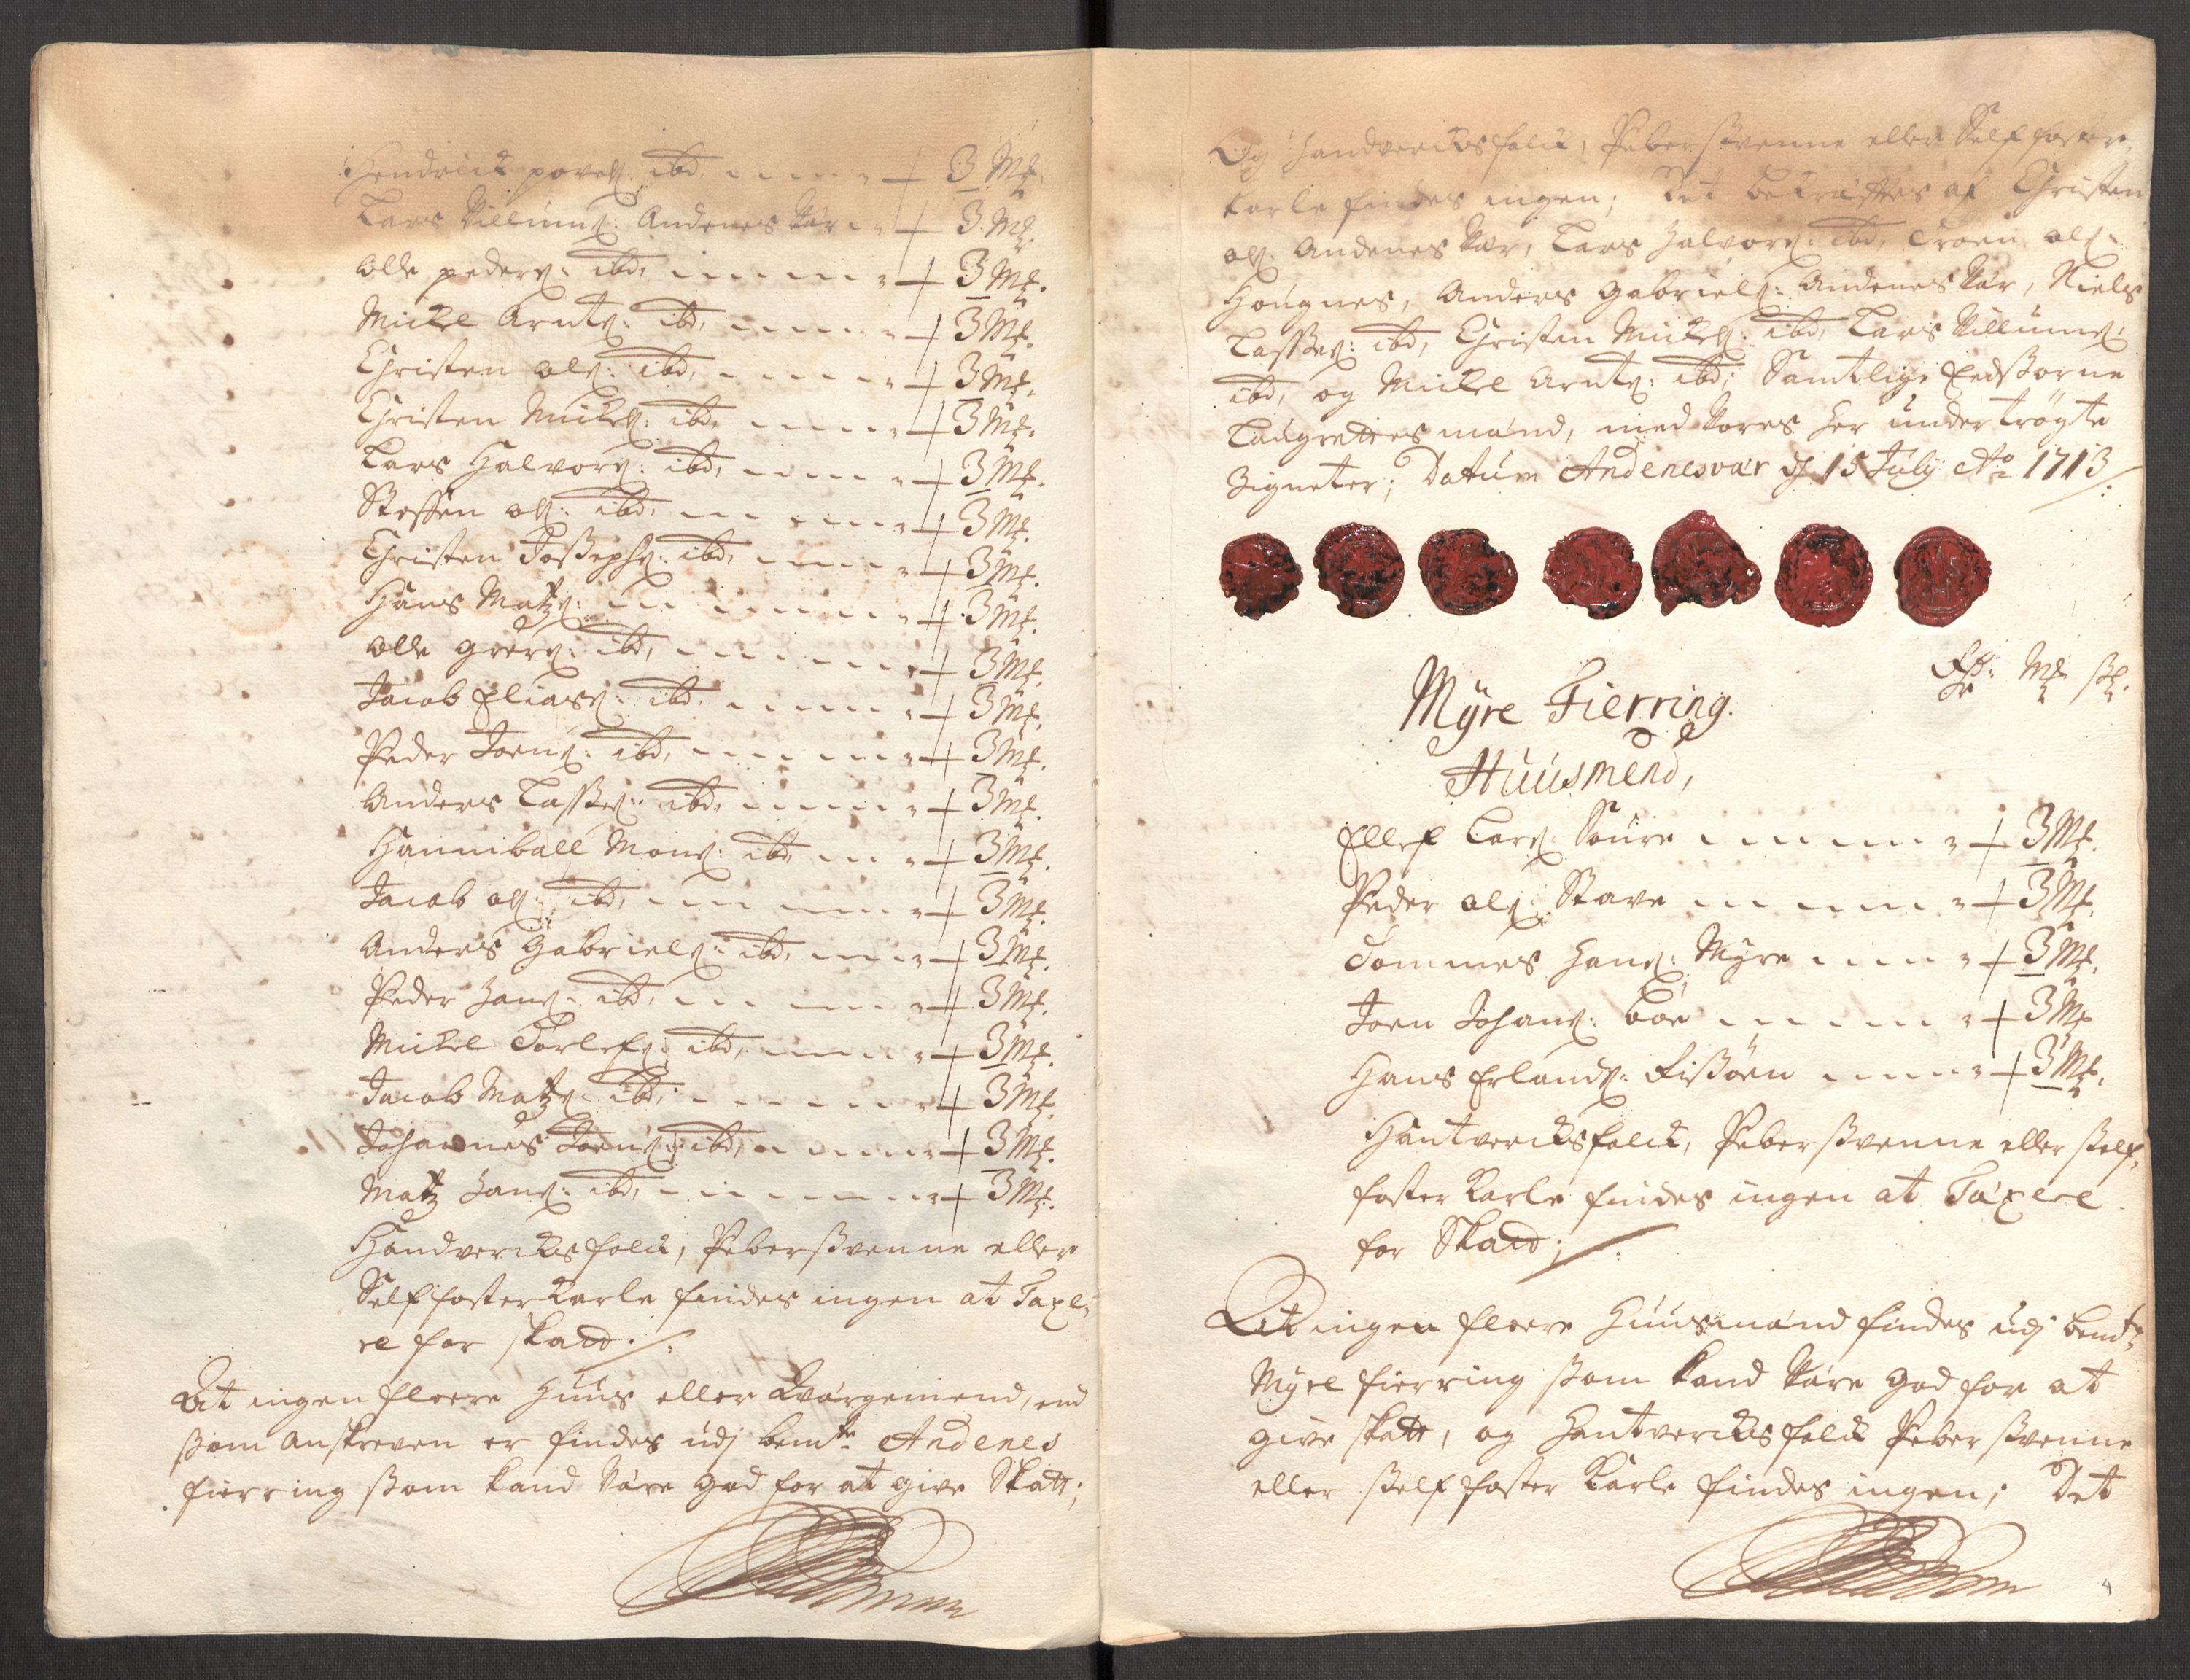 Hendrick povels: ibd, - - - - - 3 Mk.
Lars Villums: Andenes Vær - - 3 Mk.
Olle peders: ibd, - - - - - 3 Mk.
Mickel Arnts: ibd, - - - - - 3 Mk.
Christen ols: ibd, - - - - - 3 Mk.
Christen Mickels: ibd, - - - - - 3 Mk.
Lars Halvors: ibd, - - - - - 3 Mk.
Steffen ols: ibd, - - - - - 3 Mk.
Christen Joßephs: ibd, - - - - - 3 Mk.
Hans Matzs: - - - - - 3 Mk.
Olle grers: ibd, - - - - - 3 Mk.
Jacob Elias: ibd, - - - - - 3 Mk.
Peder Joens: ibd, - - - - - 3 Mk.
Anders Laßes: ibd, - - - - - 3 Mk.
Hanniball Mons: ibd, - - - - 3 Mk.
Jacob ols: ibd, - - - - - 3 Mk.
Anders Gabriels: ibd, - - - - 3 Mk.
Peder Hans: ibd, - - - - - 3 Mk.
Mickel Torlefs: ibd, - - - - - 3 Mk.
Jacob Matzs: ibd, - - - - - 3 Mk.
Johannes Joens: ibd, - - - - - 3 Mk.
Matz Hans: ibd, - - - - - 3 Mk.
Handvercksfolck, Peberßvenne eller
Selffoster Karle findes ingen at Taxe-
re for skatt ./.
At ingen fleere Huus eller Værgemend, end
ßom anskreven er findes udj bemte Andenes
fierring ßom kand være god for at give Skatt;
Og handvercksfolck, Peberßvenne eller Selffoster
karle findes ingen; Det bekræftes af Christen
ols: Andenes Vær, Lars Halvors: ibd, Troen ols:
Hougnes, Anders Gabriels: Andenes Vær, Niels
Laßes: ibd, Christen Mickels: ibd, Lars Villums:
ibd, og Mickel Arnts: ibd; Samtlige Eedßorne
Laugrettes mænd, med vores her undertrögte
Zigneter; Datum Andenesvær d 15 July Ao 1713 /:
Rdr: Mk ßk.
Myre Fierring.
Huusmend,
Ellef Lars: Soure - - - - - 3 Mk.
Peder ols: Stave - - - - - 3 Mk.
Tommes Hans: Myre - - - - 3 Mk.
Joen Johans: böe - - - - - 3 Mk
Hans Erlands: Fißöen - - - - 3 Mk.
Hantvercksfolck, Peberßvenne eller ßelf-
foster Karle findes ingen at Taxere
for Skatt; /:
At ingen fleere Huusmænd findes udj bemte
Myre fierring ßom kand være god for at
give skatt, og Hantvercksfolck Peberßvenne
eller ßelffoster Karle findes ingen; Det